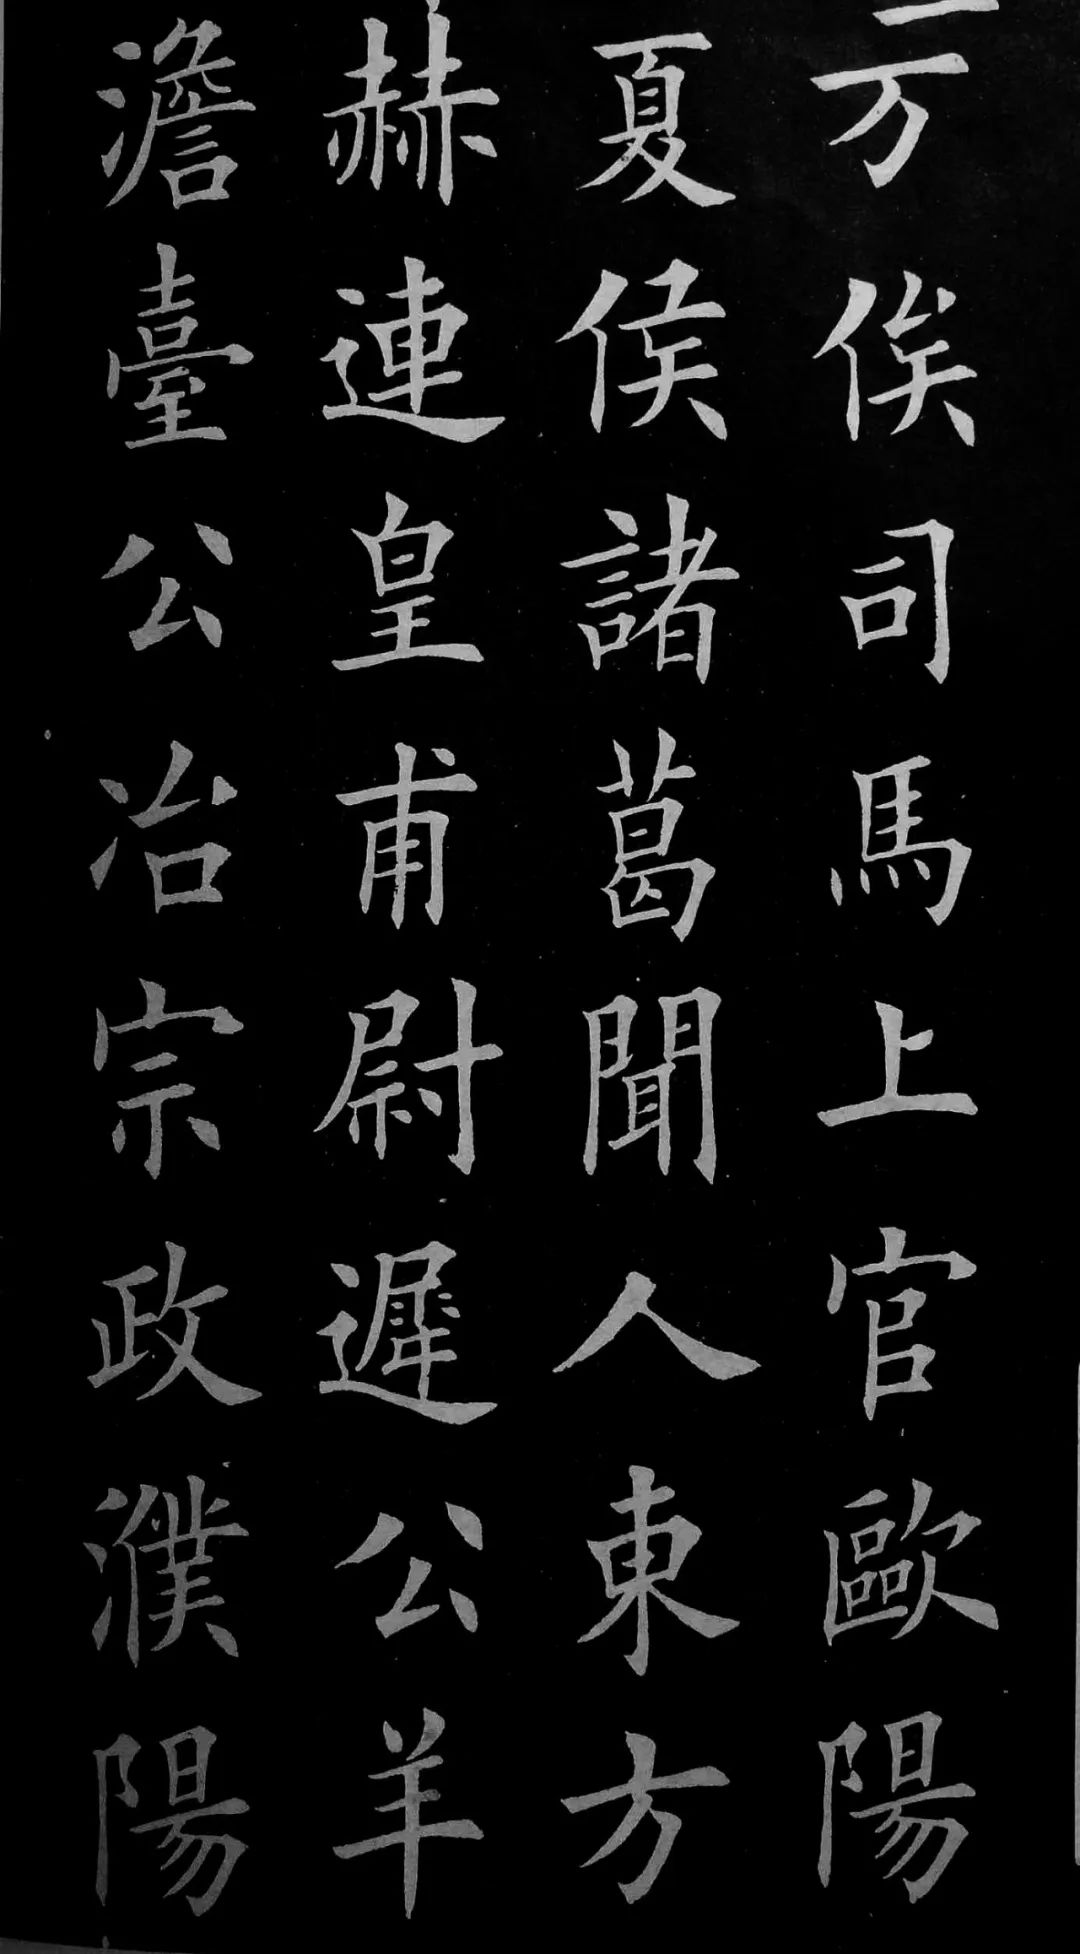 万俟司馬上官歐陽
夏侯諸葛聞人東方
赫連皇甫尉遲公羊
澹臺公冶宗政濮陽